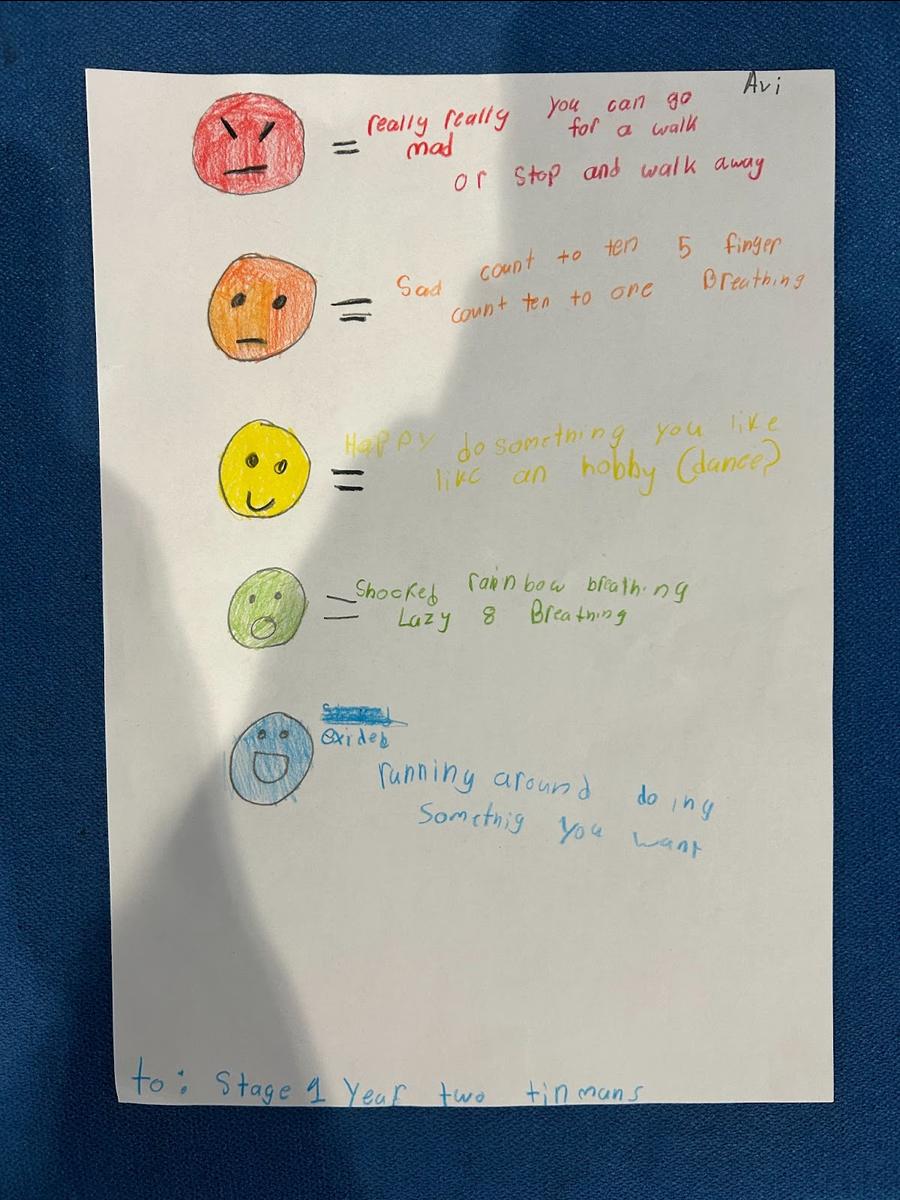 Avi
= really really mad you can go for a walk
or stop and walk away
= Sad count to ten 5 finger
count ten to one Breathing
= Happy do something you like
like an hobby (dance?)
= Shocked rainbow breathing
Lazy 8 Breathing
exided
running around doing
somethig you want
to: Stage 1 Year two tinmans